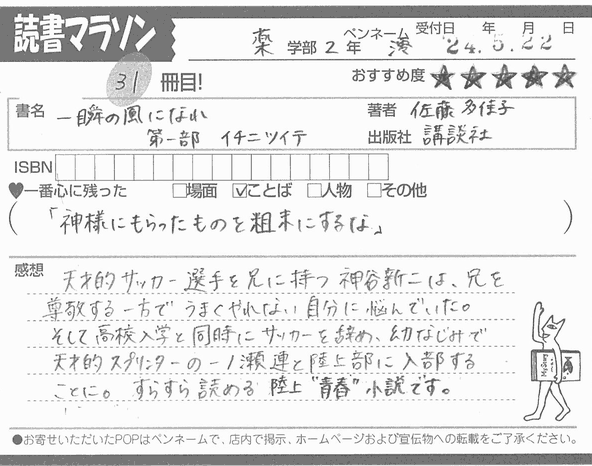 読書マラソン
薬 学部 2 年 ペンネーム 湊 受付日 年 月 日 '24.5.22
31 冊目!
おすすめ度 ★★★★★
書名 一瞬の風になれ 第一部 イチニツイテ
著者 佐藤多佳子
出版社 講談社
ISBN
♥一番心に残った □場面 ☑ことば □人物 □その他
(「神様にもらったものを粗末にするな」)
感想
天才的サッカー選手を兄に持つ神谷新二は、兄を
尊敬する一方でうまくやれない自分に悩んでいた。
そして高校入学と同時にサッカーを辞め、幼なじみで
天才的スプリンターの一ノ瀬連と陸上部に入部する
ことに。すらすら読める陸上"青春"小説です。
●お寄せいただいたPOPはペンネームで、店内で掲示、ホームページおよび宣伝物への転載をご了承ください。